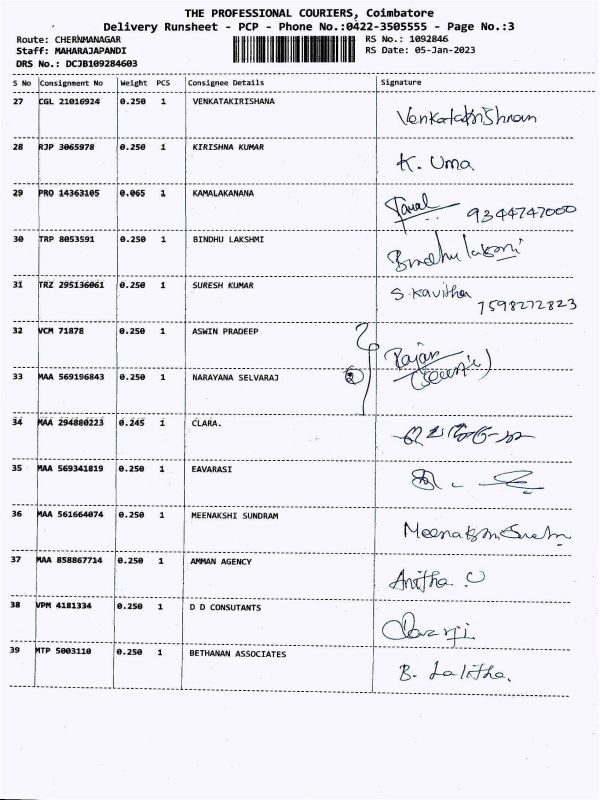 THE PROFESSIONAL COURIERS, Coimbatore
Delivery Runsheet - PCP - Phone No.:0422-3505555 - Page No.:3
Route: CHERNMANAGAR RS No.: 1092846
Staff: MAHARAJAPANDI RS Date: 05-Jan-2023
DRS No.: DCJB109284603
S No Consignment No Weight PCS Consignee Details Signature
27 CGL 21016924 0.250 1 VENKATAKIRISHANA Venkatakrishnan
28 RJP 3065978 0.250 1 KIRISHNA KUMAR K. Uma
29 PRO 14363105 0.065 1 KAMALAKANANA Kamal 9344747000
30 TRP 8053591 0.250 1 BINDHU LAKSHMI Bindhu laksmi
31 TRZ 295136061 0.250 1 SURESH KUMAR S. Kavitha
7598272823
32 VCM 71878 0.250 1 ASWIN PRADEEP Rajan
33 MAA 569196843 0.250 1 NARAYANA SELVARAJ
34 MAA 294880223 0.245 1 CLARA.
35 MAA 569341819 0.250 1 EAVARASI
36 MAA 561664074 0.250 1 MEENAKSHI SUNDRAM
37 MAA 858867714 0.250 1 AMMAN AGENCY Anitha
38 VPM 4181334 0.250 1 D D CONSUTANTS
39 MTP 5003110 0.250 1 BETHANAN ASSOCIATES B. Lalitha.